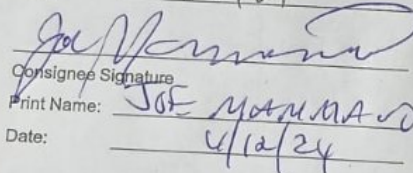 Consignee Signature
Print Name: JOE
Date: 4/12/24